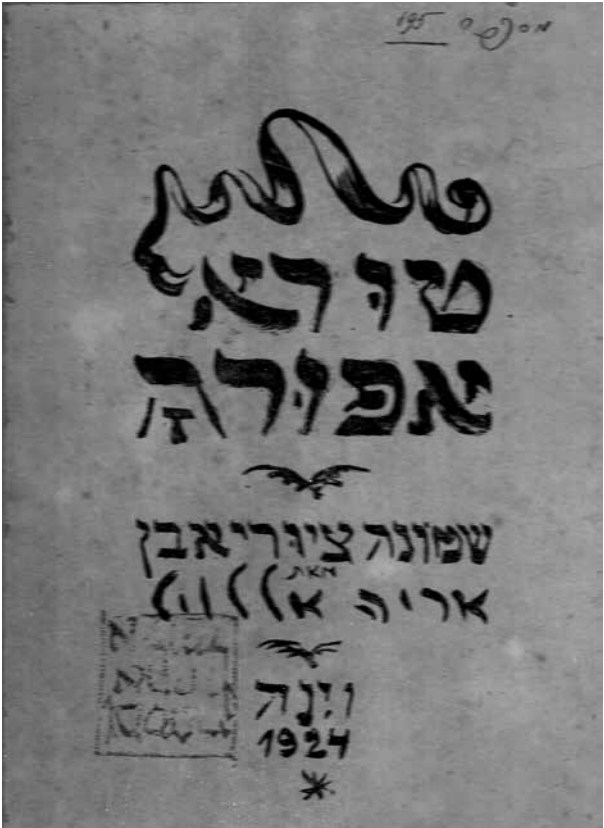 195
טורא
אפורה
שמונה ציורי אבן
מאת
אריה אללויל
וינה
1924